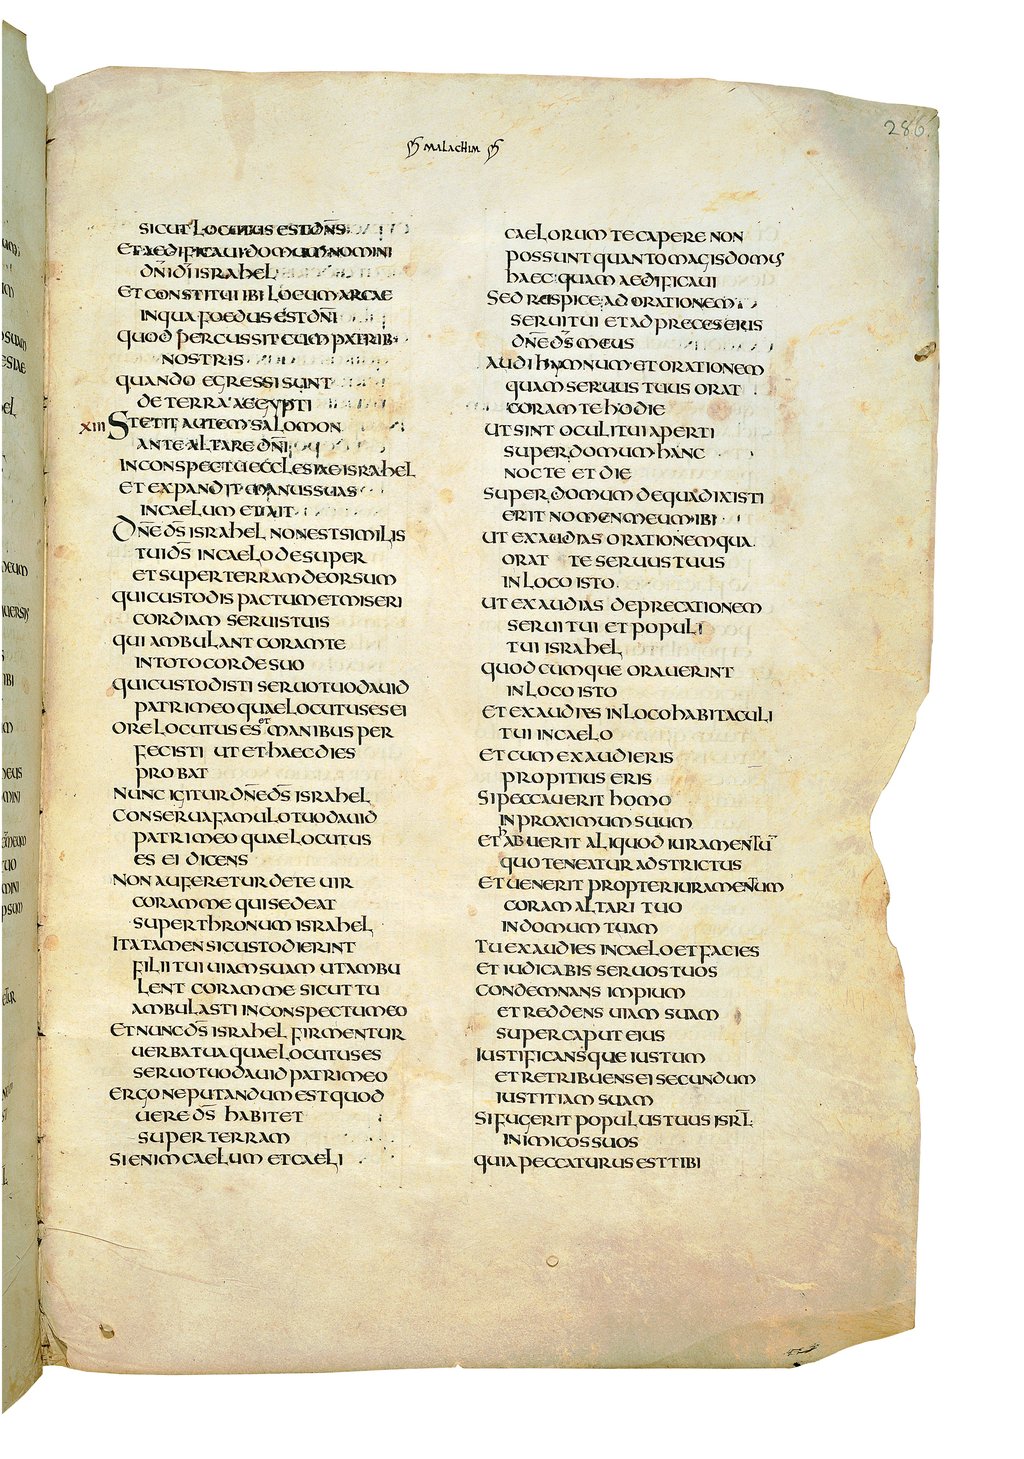 286
MALACHIM
SICUT LOCUTUS EST DN̄S
ET AEDIFICAUI DOMUM NOMINI
DN̄I DĪ ISRAHEL
ET CONSTITUI IBI LOCUM ARCAE
IN QUA FOEDUS EST DN̄I
QUOD PERCUSSIT CUM PATRIB·
NOSTRIS
QUANDO EGRESSI SUNT
DE TERRA AEGYPTI
XIII STETIT AUTEM SALOMON
ANTE ALTARE DN̄I
IN CONSPECTU ECCLESIAE ISRAHEL
ET EXPANDIT MANUS SUAS
IN CAELUM ET AIT
DN̄E DS̄ ISRAHEL NON EST SIMILIS
TUI DS̄ IN CAELO DESUPER
ET SUPER TERRAM DEORSUM
QUI CUSTODIS PACTUM ET MISERI
CORDIAM SERUIS TUIS
QUI AMBULANT CORAM TE
IN TOTO CORDE SUO
QUI CUSTODISTI SERUO TUO DAUID
PATRI MEO QUAE LOCUTUS ES EI
ORE LOCUTUS ES ET MANIBUS PER
FECISTI UT ET HAEC DIES
PROBAT
NUNC IGITUR DN̄E DS̄ ISRAHEL
CONSERUA FAMULO TUO DAUID
PATRI MEO QUAE LOCUTUS
ES EI DICENS
NON AUFERETUR DE TE UIR
CORAM ME QUI SEDEAT
SUPER THRONUM ISRAHEL
ITA TAMEN SI CUSTODIERINT
FILII TUI UIAM SUAM UT AMBU
LENT CORAM ME SICUT TU
AMBULASTI IN CONSPECTU MEO
ET NUNC DS̄ ISRAHEL FIRMENTUR
UERBA TUA QUAE LOCUTUS ES
SERUO TUO DAUID PATRI MEO
ERGO NE PUTANDUM EST QUOD
UERE DS̄ HABITET
SUPER TERRAM
SI ENIM CAELUM ET CAELI
CAELORUM TE CAPERE NON
POSSUNT QUANTO MAGIS DOMUS
HAEC QUAM AEDIFICAUI
SED RESPICE AD ORATIONEM
SERUI TUI ET AD PRECES EIUS
DN̄E DS̄ MEUS
AUDI HYMNUM ET ORATIONEM
QUAM SERUUS TUUS ORAT
CORAM TE HODIE
UT SINT OCULI TUI APERTI
SUPER DOMUM HANC
NOCTE ET DIE
SUPER DOMUM DE QUA DIXISTI
ERIT NOMEN MEUM IBI
UT EXAUDIAS ORATIONEM QUA
ORAT TE SERUUS TUUS
IN LOCO ISTO
UT EXAUDIAS DEPRECATIONEM
SERUI TUI ET POPULI
TUI ISRAHEL
QUODCUMQUE ORAUERINT
IN LOCO ISTO
ET EXAUDIES IN LOCO HABITACULI
TUI IN CAELO
ET CUM EXAUDIERIS
PROPITIUS ERIS
SI PECCAUERIT HOMO
IN PROXIMUM SUUM
ET HABUERIT ALIQUOD IURAMENTŪ
QUO TENEATUR ADSTRICTUS
ET UENERIT PROPTER IURAMENTUM
CORAM ALTARI TUO
IN DOMUM TUAM
TU EXAUDIES IN CAELO ET FACIES
ET IUDICABIS SERUOS TUOS
CONDEMNANS IMPIUM
ET REDDENS UIAM SUAM
SUPER CAPUT EIUS
IUSTIFICANSQUE IUSTUM
ET RETRIBUENS EI SECUNDUM
IUSTITIAM SUAM
SI FUGERIT POPULUS TUUS ISRL̄
INIMICOS SUOS
QUIA PECCATURUS EST TIBI